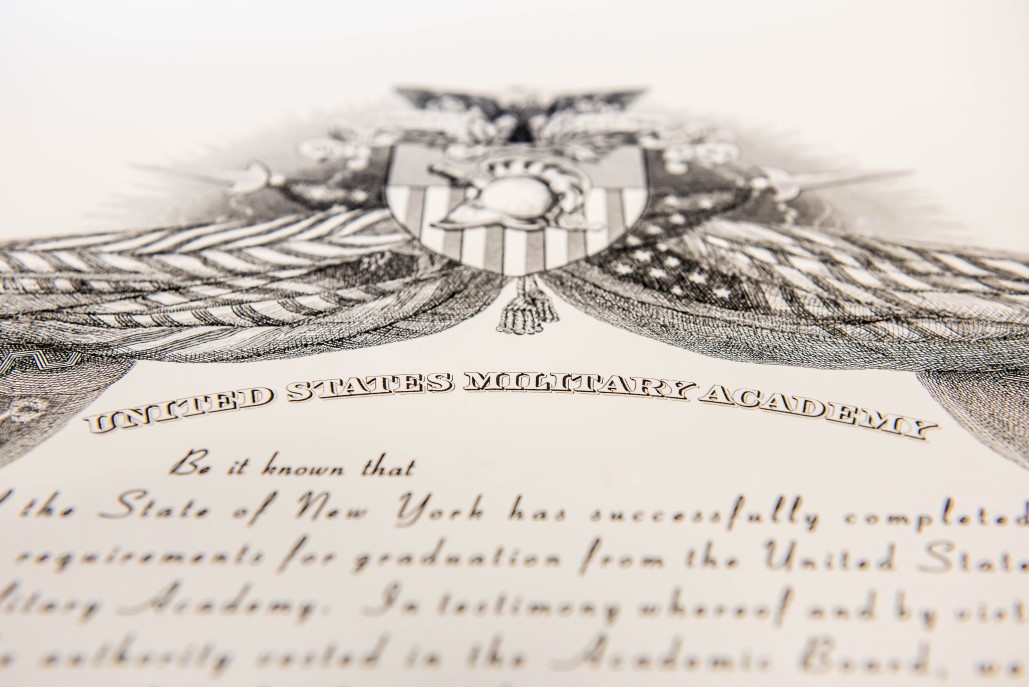 UNITED STATES MILITARY ACADEMY
Be it known that
the State of New York has successfully completed
requirements for graduation from the United State
litary Academy. In testimony whereof and by virt
authority vested in the Academic Board, we